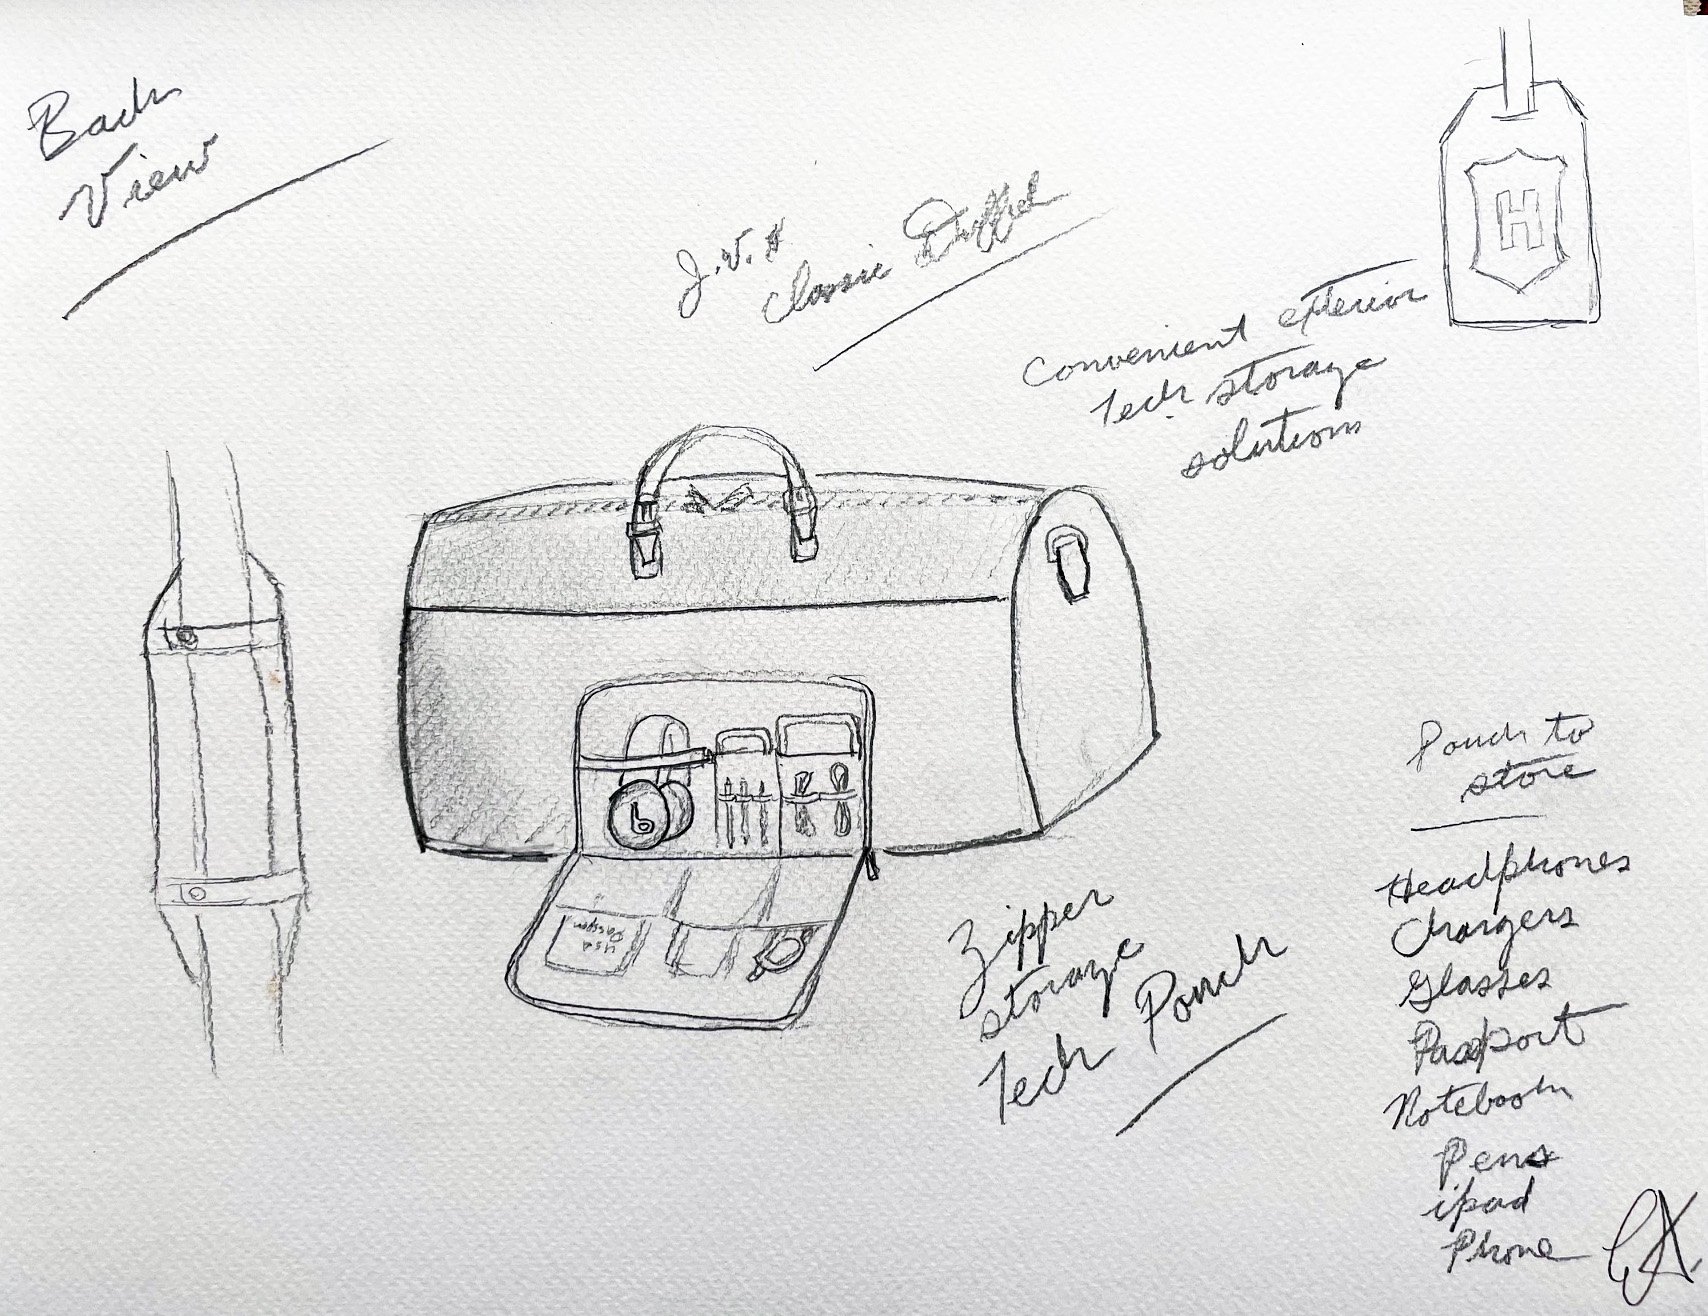 Back
View
J.V.H
Classic Duffel
H
Convenient exterior
Tech storage
solutions
b
USA
Passport
Zipper
storage
Tech Pouch
Pouch to
store
Headphones
Chargers
Glasses
Passport
Notebook
Pens
ipad
Phone